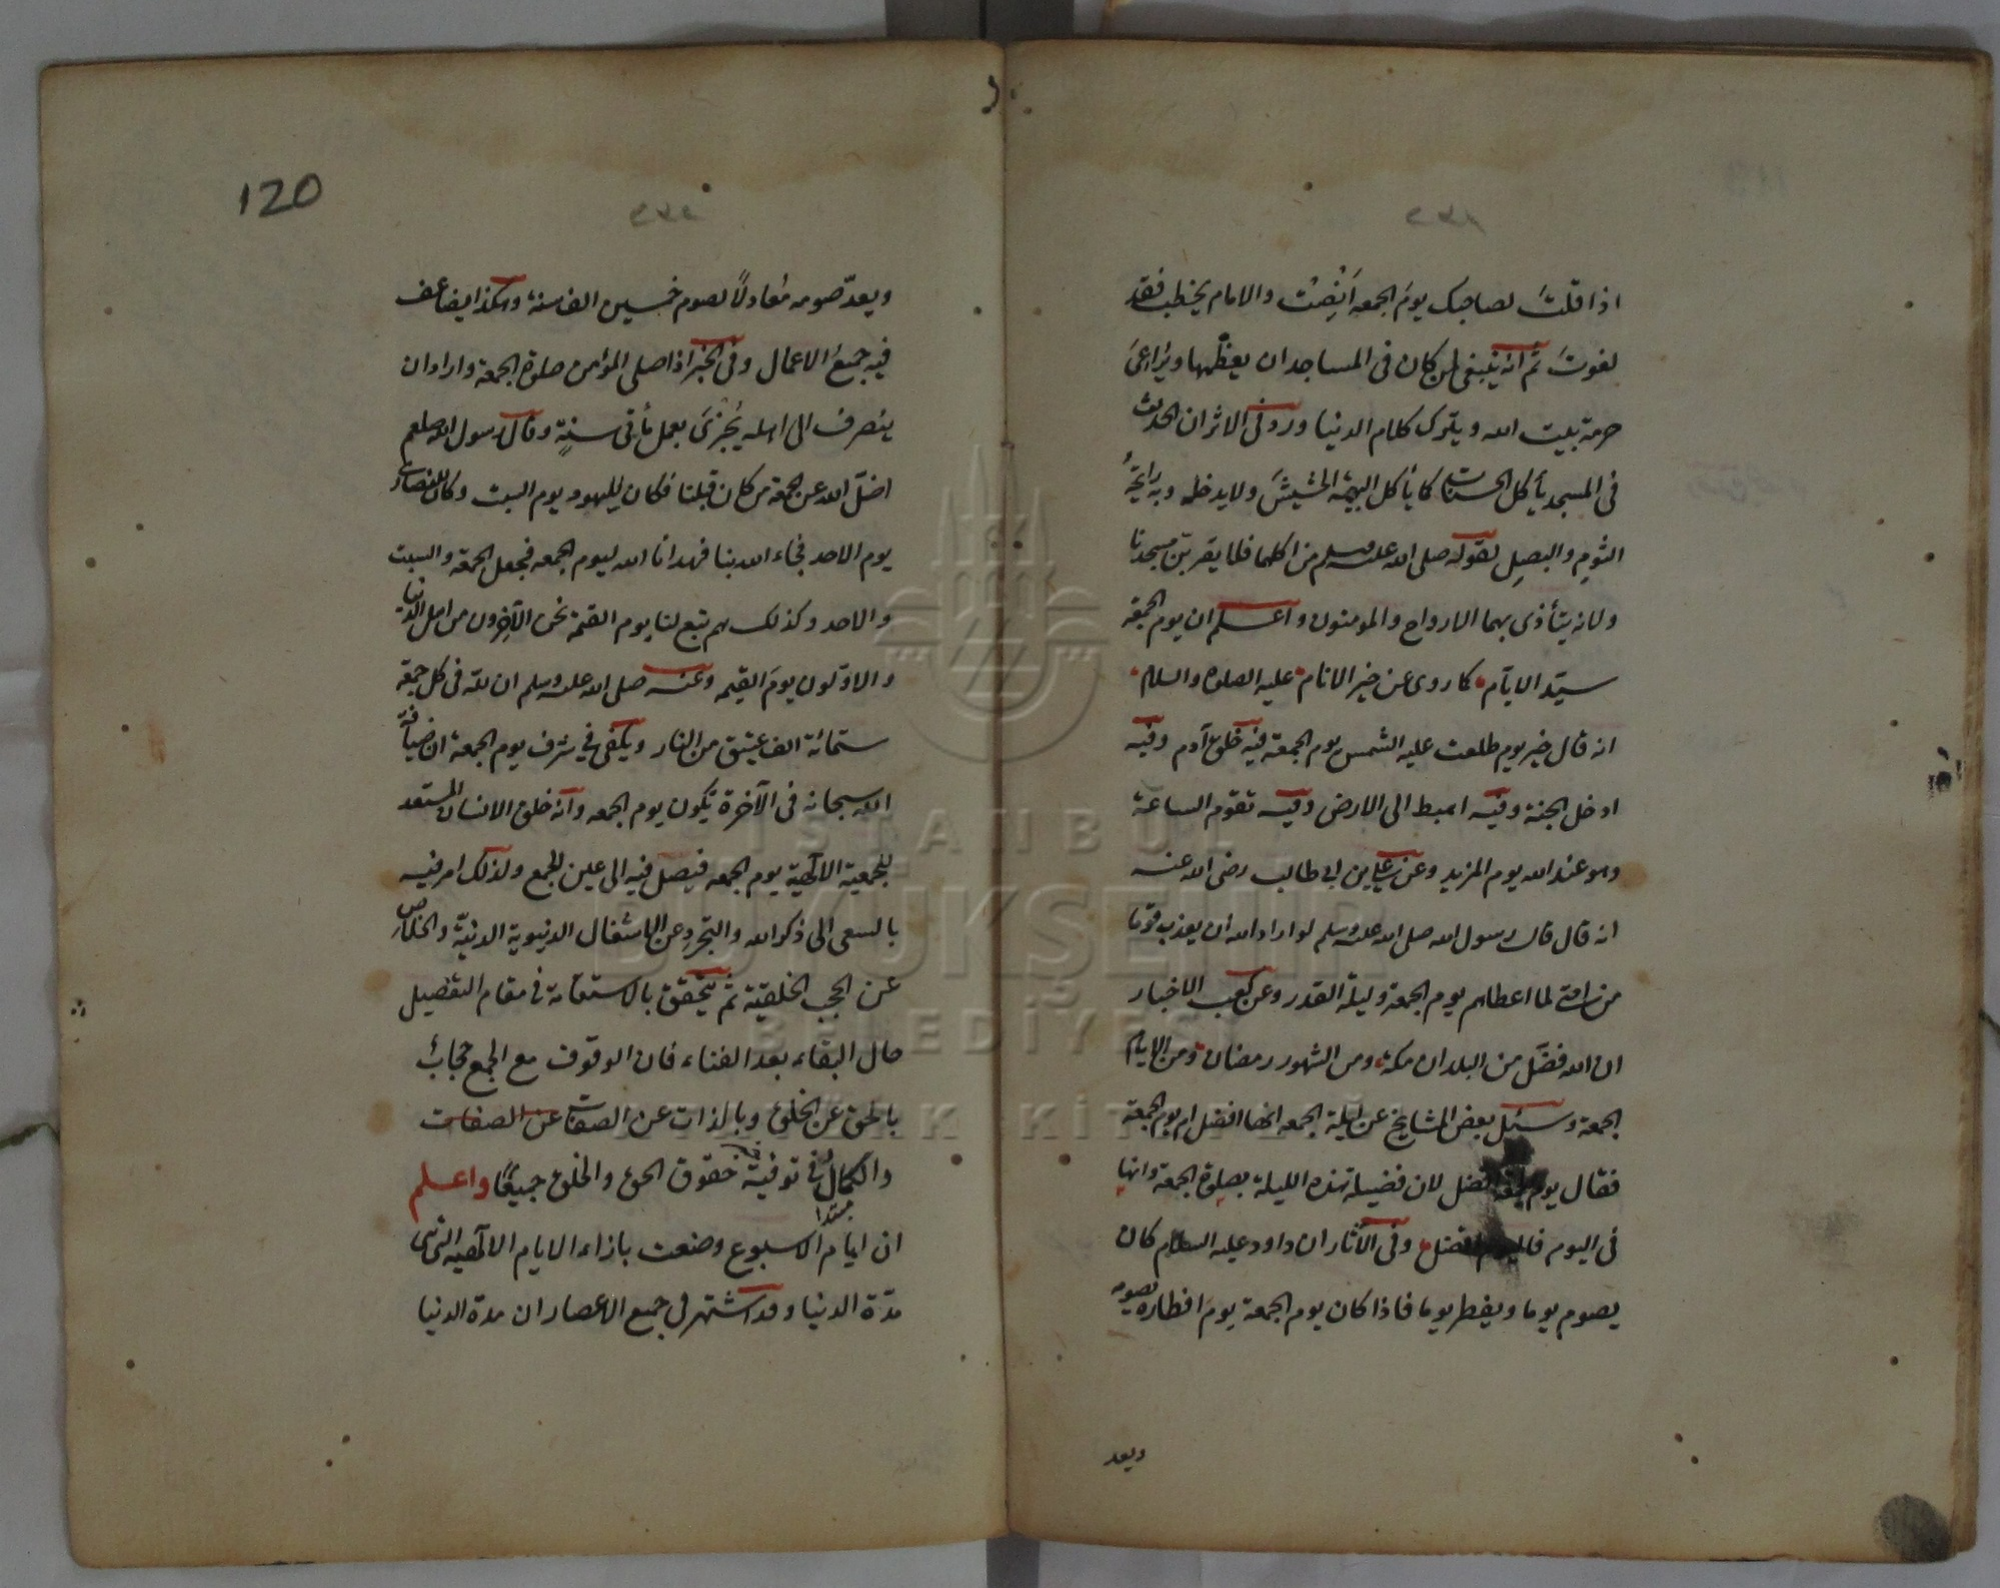 اذا قلت لصاحبك يوم الجمعه انصت والامام يخطب فقد
لغوت ثم انه ينبغى لمن كان فى المساجد ان يعظمها ويراعى
حرمة بيت الله ويترك كلام الدنيا ورد فى الاثر ان الحديث
فى المسجد يأكل الحسنات كما يأكل البهيمة الحشيش ولا يدخله وبه رايحة
الثوم والبصل لقوله صلى الله عليه وسلم من اكلهما فلا يقربن مسجدنا
ولانه يتأذى بهما الارواح والمومنون واعلم ان يوم الجمعة
سيد الايام كما روى عن خير الانام عليه الصلوة والسلام
انه قال خير يوم طلعت عليه الشمس يوم الجمعة فيه خلق آدم وفيه
ادخل الجنة وفيه اهبط الى الارض وفيه تقوم الساعة
وهو عند الله يوم المزيد وعن على بن ابى طالب رضى الله عنه
انه قال قال رسول الله صلى الله عليه وسلم لو اراد الله ان يعذب قوما
من امتى لما اعطاهم يوم الجمعة وليلة القدر وعن كعب الاخبار
ان الله فضل من البلدان مكة ومن الشهور رمضان ومن الايام
الجمعة وسئل بعض المشايخ عن ليلة الجمعه انها افضل ام يوم الجمعة
فقال يوم الجمعة افضل لان فضيلة هذه الليلة بصلوة الجمعة وانها
فى اليوم فاليوم افضل وفى الآثار ان داود عليه السلام كان
يصوم يوما ويفطر يوما فاذا كان يوم الجمعة يوم افطاره يصومه
ويعد
120
ويعد صومه معادلا لصوم خمسين الف سنة وهكذا يضاعف
فيه جميع الاعمال وفى الخبر اذا صلى المؤمن صلوة الجمعة واراد ان
ينصرف الى اهله يجزى بعمل مأتى سنة وقال رسول الله صلعم
اضل الله عن الجمعة من كان قبلنا فكان لليهود يوم السبت وكان للنصارى
يوم الاحد فجاء الله بنا فهدانا الله ليوم الجمعه فجعل الجمعة والسبت
والاحد وكذلك هم تبع لنا يوم القيمة نحن الآخرون من اهل الدنيا
والاولون يوم القيمه وعنه صلى الله عليه وسلم ان لله فى كل جمعة
ستمائة الف عتيق من النار ويكفى فى شرف يوم الجمعة ان ضيافة
الله سبحانه فى الآخرة تكون يوم الجمعه وانه خلق الانسان المستعد
للجمعية الالهية يوم الجمعه فيصل فيه الى عين الجمع ولذلك امر فيه
بالسعى الى ذكر الله والتجرد عن الاشتغال الدنيوية الدنية والخلاص
عن الحجب الخلقية ثم يتحقق بالاستقامة فى مقام التفصيل
حال البقاء بعد الفناء فان الوقوف مع الجمع حجاب
بالحق عن الخلق وبالذات عن الصفات عن الصفات
والكمال فى توفية حقوق الحق والخلق جميعا واعلم
مبتدا
ان ايام الاسبوع وضعت بازاء الايام الالهيه التى هى
مدة الدنيا وقد اشتهر فى جميع الاعصار ان مدة الدنيا
ISTANBUL
BÜYÜKŞEHİR
BELEDİYESİ